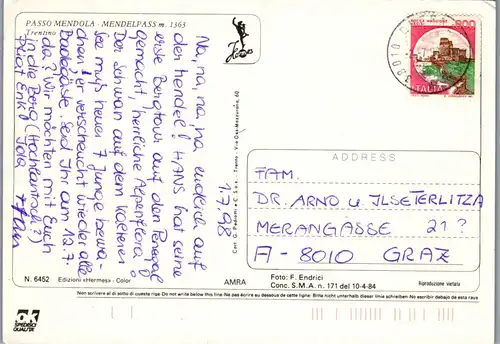 PASSO MENDOLA - MENDELPASS m. 1363
Trentino
1.7.98
Na, na, na, na endlich auf
der Mendel! HANS hat seine
erste Bergtour auf den Penegal
gemacht, herrliche Alpenflora!
Der Schwan auf dem Kalterer
See muß heuer 7 Junge bewa-
chen: er verscheucht wieder alle
Badegäste. Seid Ihr am 12.7.
da? Wir möchten mit Euch
in die Berg (Hochlantsch?)
Eure
N. 6452 Edizioni «Hermes» - Color
AMRA
500
ITALIA
38010
ADDRESS
FAM.
DR. ARNO u. ILSE TERLITZA
MERANGASSE 21?
A-8010 GRAZ
Foto: F. Endrici
Conc. S.M.A. n. 171 del 10-4-84
Riproduzione vietata
Non scrivere al di sotto di questa riga Do not write below this line Ne pas écrire au-dessous de cette ligne Bitte nicht unterhalb dieser linie schreiben No escribir debajo de esta raya
ok
SPEDISCI
QUALITA'